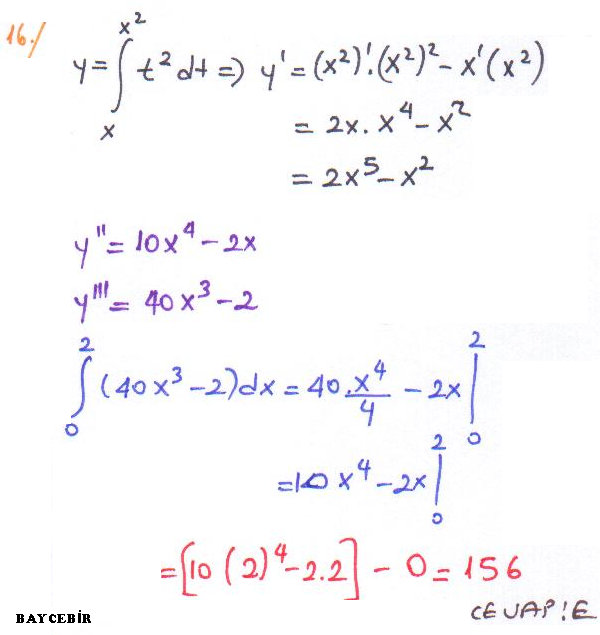 16./
y = ∫ₓ^(x²) t² dt ⇒ y' = (x²)'.(x²)² - x'(x²)
= 2x.x⁴ - x²
= 2x⁵ - x²
y'' = 10x⁴ - 2x
y''' = 40x³ - 2
∫₀² (40x³ - 2)dx = 40.x⁴/4 - 2x |₀²
= 10x⁴ - 2x |₀²
= [10(2)⁴ - 2.2] - 0 = 156
CEVAP:E
BAYCEBİR